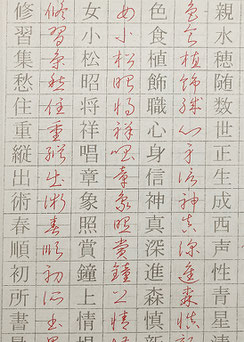 修習集愁住重縦出術春順初所書
修習集愁住重縦出術春順初所書
女小松昭将祥唱章象照賞鐘上情
女小松昭将祥唱章象照賞鐘上情
色食植飾職心身信神真深進森慎
色食植飾職心身信神真深進森慎
親水穂随数世正生成西声青星